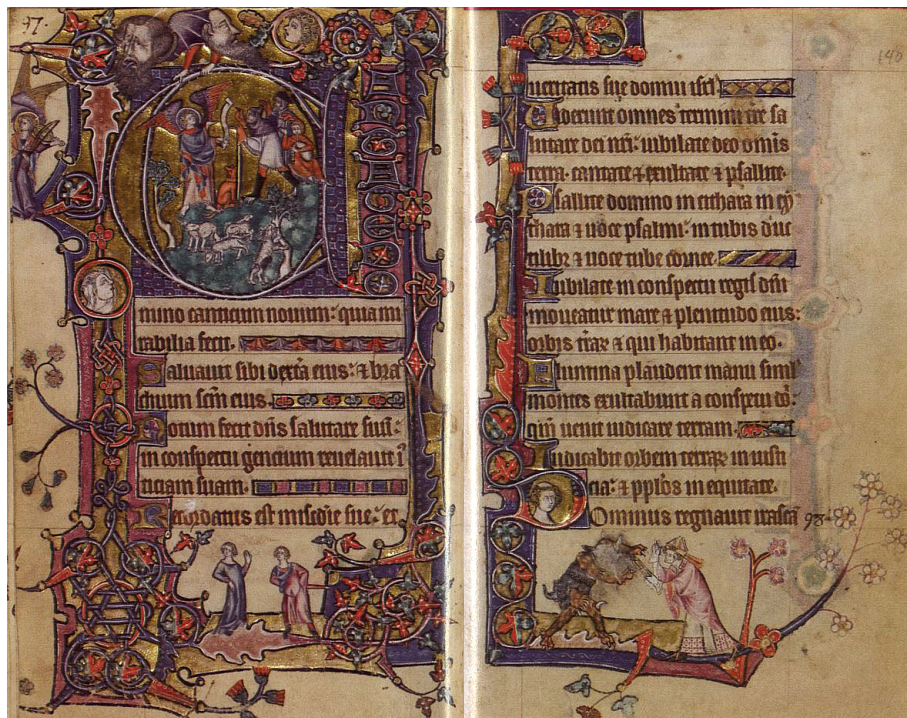 97.
mino canticum nouum: quia mi
rabilia fecit.
Saluauit sibi dext͛a eius: ⁊ bra
chium scm̄ eius.
Notum fecit dn̄s salutare suū:
in conspectu gencium reuelauit i
ticiam suam.
Recordatus est mis̄die sue: et
140
ueritatis sue domui isrl̄.
Uiderunt omnes termini tre sa
lutare dei nr̄i: iubilate deo omīs
terra. cantate ⁊ exultate ⁊ psallite.
Psallite domino in cithara in cy
thara ⁊ uoce psalmi: in tubis duc
tilibꝫ ⁊ uoce tube cornee.
Iubilate in conspectu regis dn̄i
moueatur mare ⁊ plenitudo eius:
orbis tr̄aꝝ ⁊ qui habitant in eo.
Flumina plaudent manu simł
montes exultabunt a conspectu dō:
qm̄ uenit iudicare terram.
Iudicabit orbem terraꝝ in iusti
cia: ⁊ ppl̄os in equitate.
Dominus regnauit irascā
98